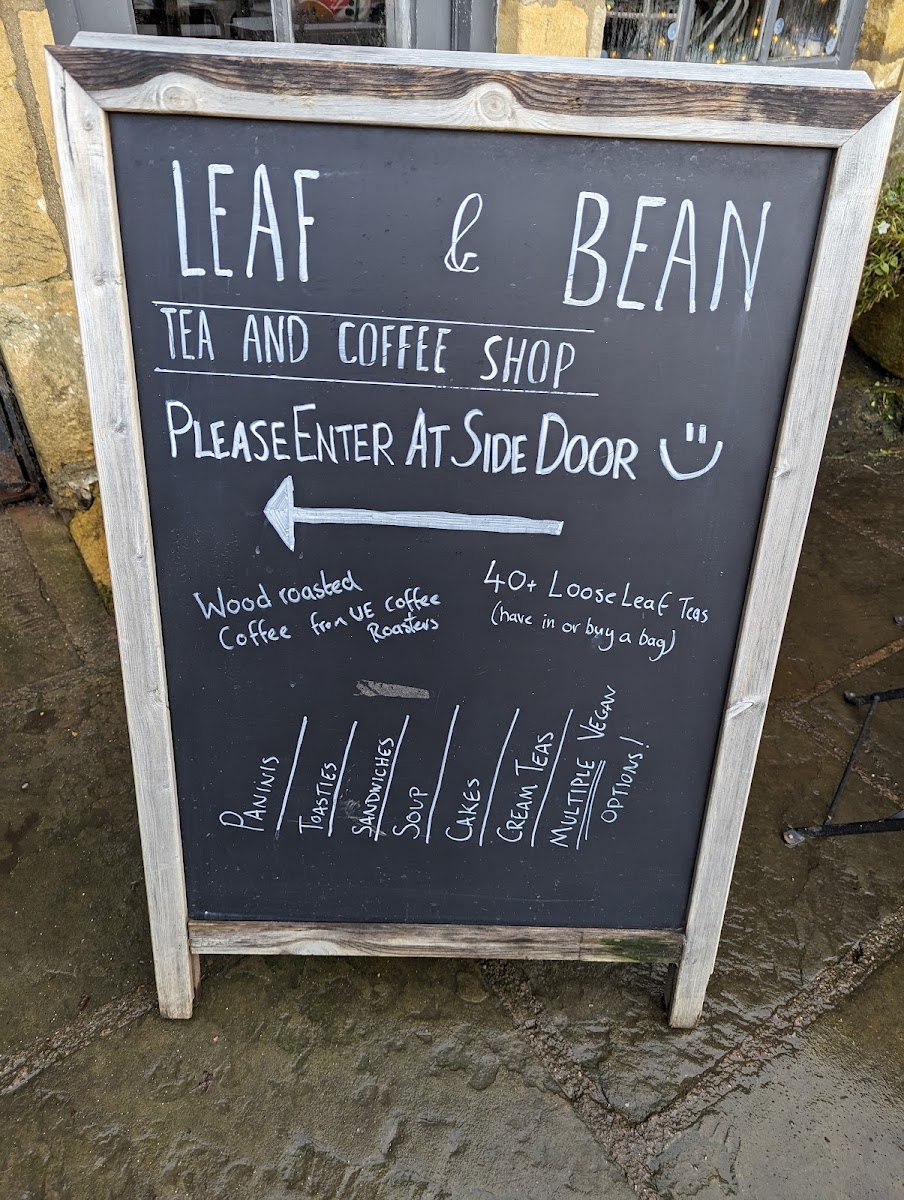 LEAF & BEAN
TEA AND COFFEE SHOP
PLEASE ENTER AT SIDE DOOR
Wood roasted
Coffee from UE Coffee
Roasters
40+ LOOSE LEAF TEAS
(have in or buy a bag)
PANINIS
TOASTIES
SANDWICHES
SOUP
CAKES
CREAM TEAS
MULTIPLE VEGAN
OPTIONS!